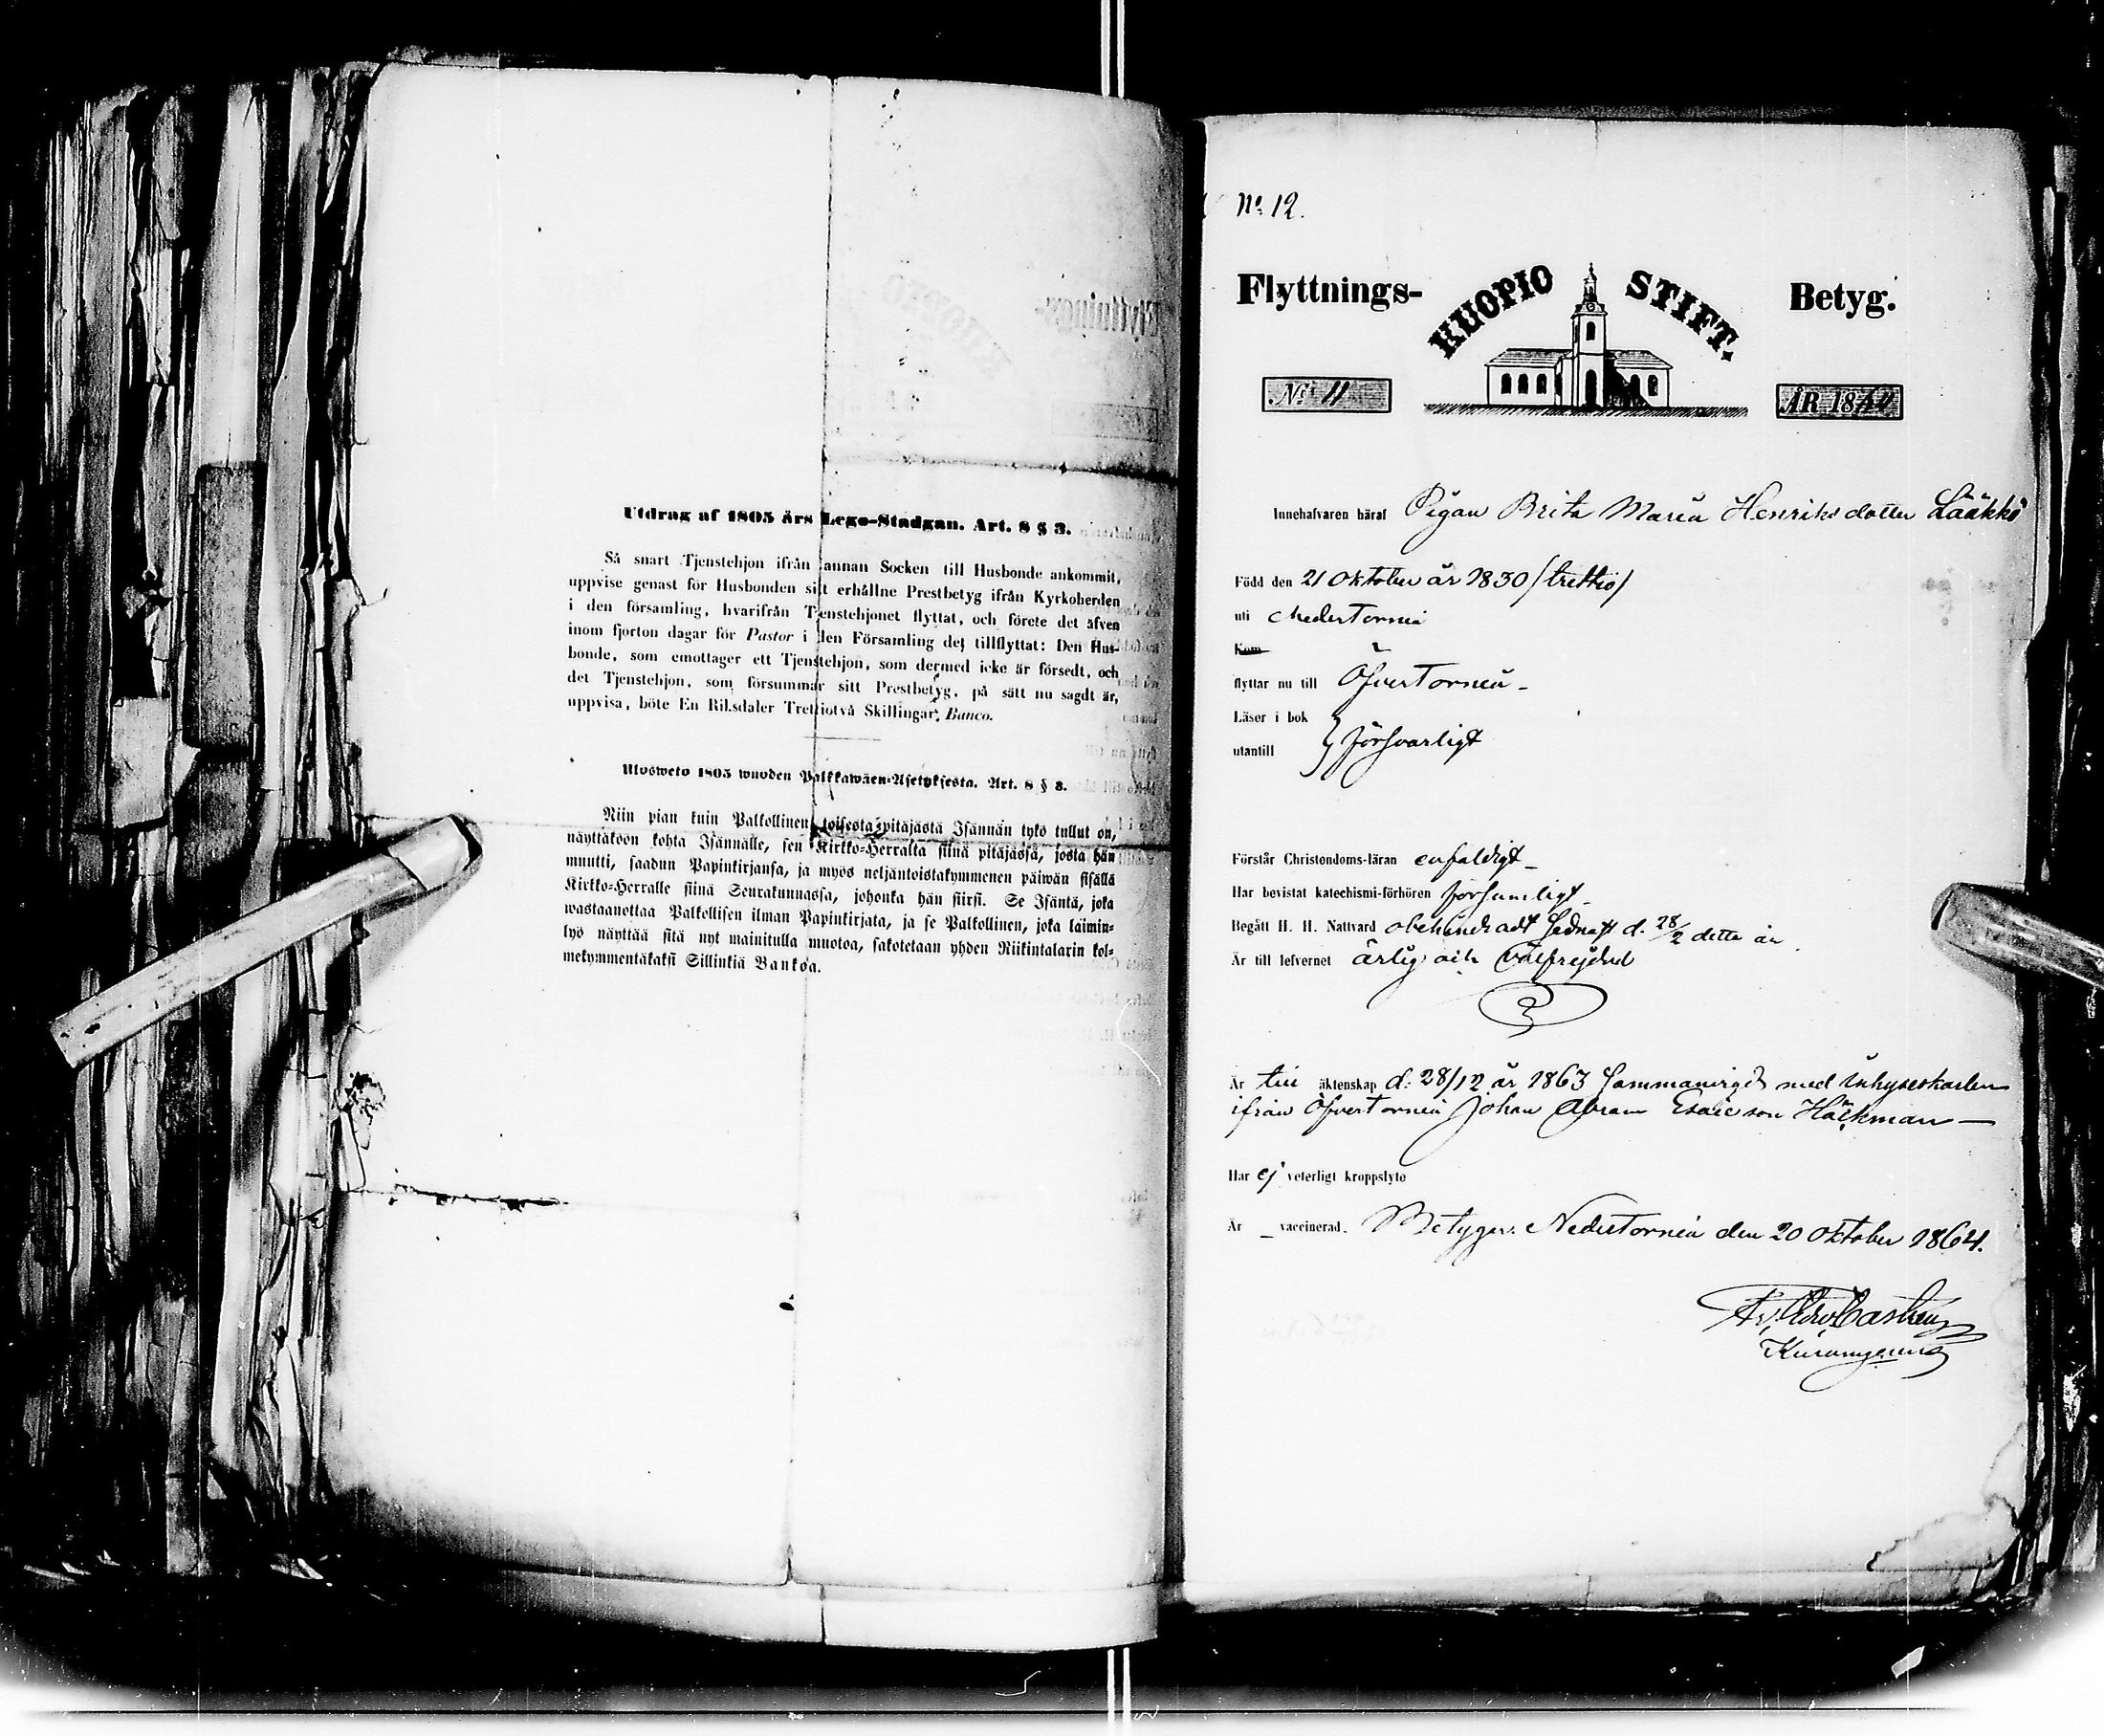 Utdrag af 1805 års Lego-Stadgan. Art. 8 § 3.
Så snart Tjenstehjon ifrån annan Socken till Husbonde ankommit,
uppvise genast för Husbonden sitt erhållne Prestbetyg ifrån Kyrkoherden
i den församling, hvarifrån Tjenstehjonet flyttat, och förete det äfven
inom fjorton dagar för Pastor i den Församling det tillflyttat: Den Hus-
bonde, som emottager ett Tjenstehjon, som dermed icke är försedt, och
det Tjenstehjon, som försummar sitt Prestbetyg, på sätt nu sagdt är,
uppvisa, böte En Riksdaler Trettiotvå Skillingar Banco.
Ulosweto 1805 wuoden Palkkawäen-Asetuksesta. Art. 8 § 3.
Niin pian kuin Palkollinen toisesta pitäjästä Isännän tykö tullut on,
näyttäköön kohta Isännälle, sen Kirkko-Herralta siinä pitäjässä, josta hän
muutti, saadun Papinkirjansa, ja myös neljäntoistakymmenen päiwän sisällä
Kirkko-Herralle siinä Seurakunnassa, johonka hän siirsi. Se Isäntä, joka
wastaanottaa Palkollisen ilman Papinkirjata, ja se Palkollinen, joka laimin-
lyö näyttää sitä nyt mainitulla muotoa, sakotetaan yhden Riikintalarin kol-
mekymmentäkaksi Sillinkiä Bankoa.
No 12.
Flyttnings- KUOPIO STIFT. Betyg.
No 11 ÅR 1864
Innehafvaren häraf Pigan Brita Maria Henriksdotter Lääkkö
Född den 21 Oktober år 1830 (trettio)
uti NederTorneå
Kom
flyttar nu till ÖfverTorneå
Läser i bok
utantill försvarligt
Förstår Christendoms-läran enfaldigt
Har bevistat katechismi-förhören försumligt
Begått H. H. Nattvard obehindradt sednast d. 28/2 detta år
Är till lefvernet ärlig och välfrejdad
Är till äktenskap d. 28/12 år 1863 sammanvigd med inhyseskarlen
ifrån ÖfverTorneå Johan Abram Esaiesson Häckman
Har ej veterligt kroppslyte
Är vaccinerad. Betygar. NederTorneå den 20 Oktober 1864.